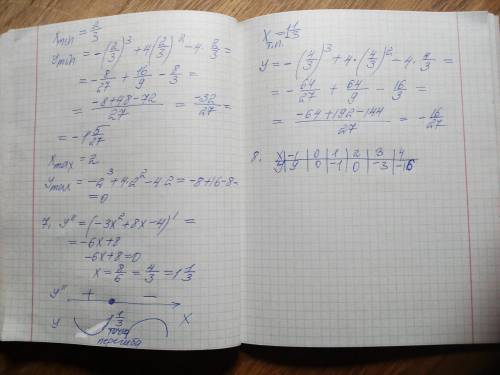 Xmin = 2/3
Ymin = -(2/3)³ + 4(2/3)² - 4·2/3 =
= -8/27 + 16/9 - 8/3 =
= (-8+48-72)/27 = -32/27 =
= -1 5/27
Xmax = 2
Ymax = -2³ + 4·2² - 4·2 = -8+16-8 =
= 0
7. y'' = (-3x² + 8x - 4)' =
= -6x+8
-6x+8=0
X = 8/6 = 4/3 = 1 1/3
y'' + -
y 1 1/3 X
точка
перегиба
X т.п. = 1 1/3
y = -(4/3)³ + 4·(4/3)² - 4·4/3 =
= -64/27 + 64/9 - 16/3 =
= (-64+192-144)/27 = -16/27
8. X -1 0 1 2 3 4
y 9 0 -1 0 -3 -16